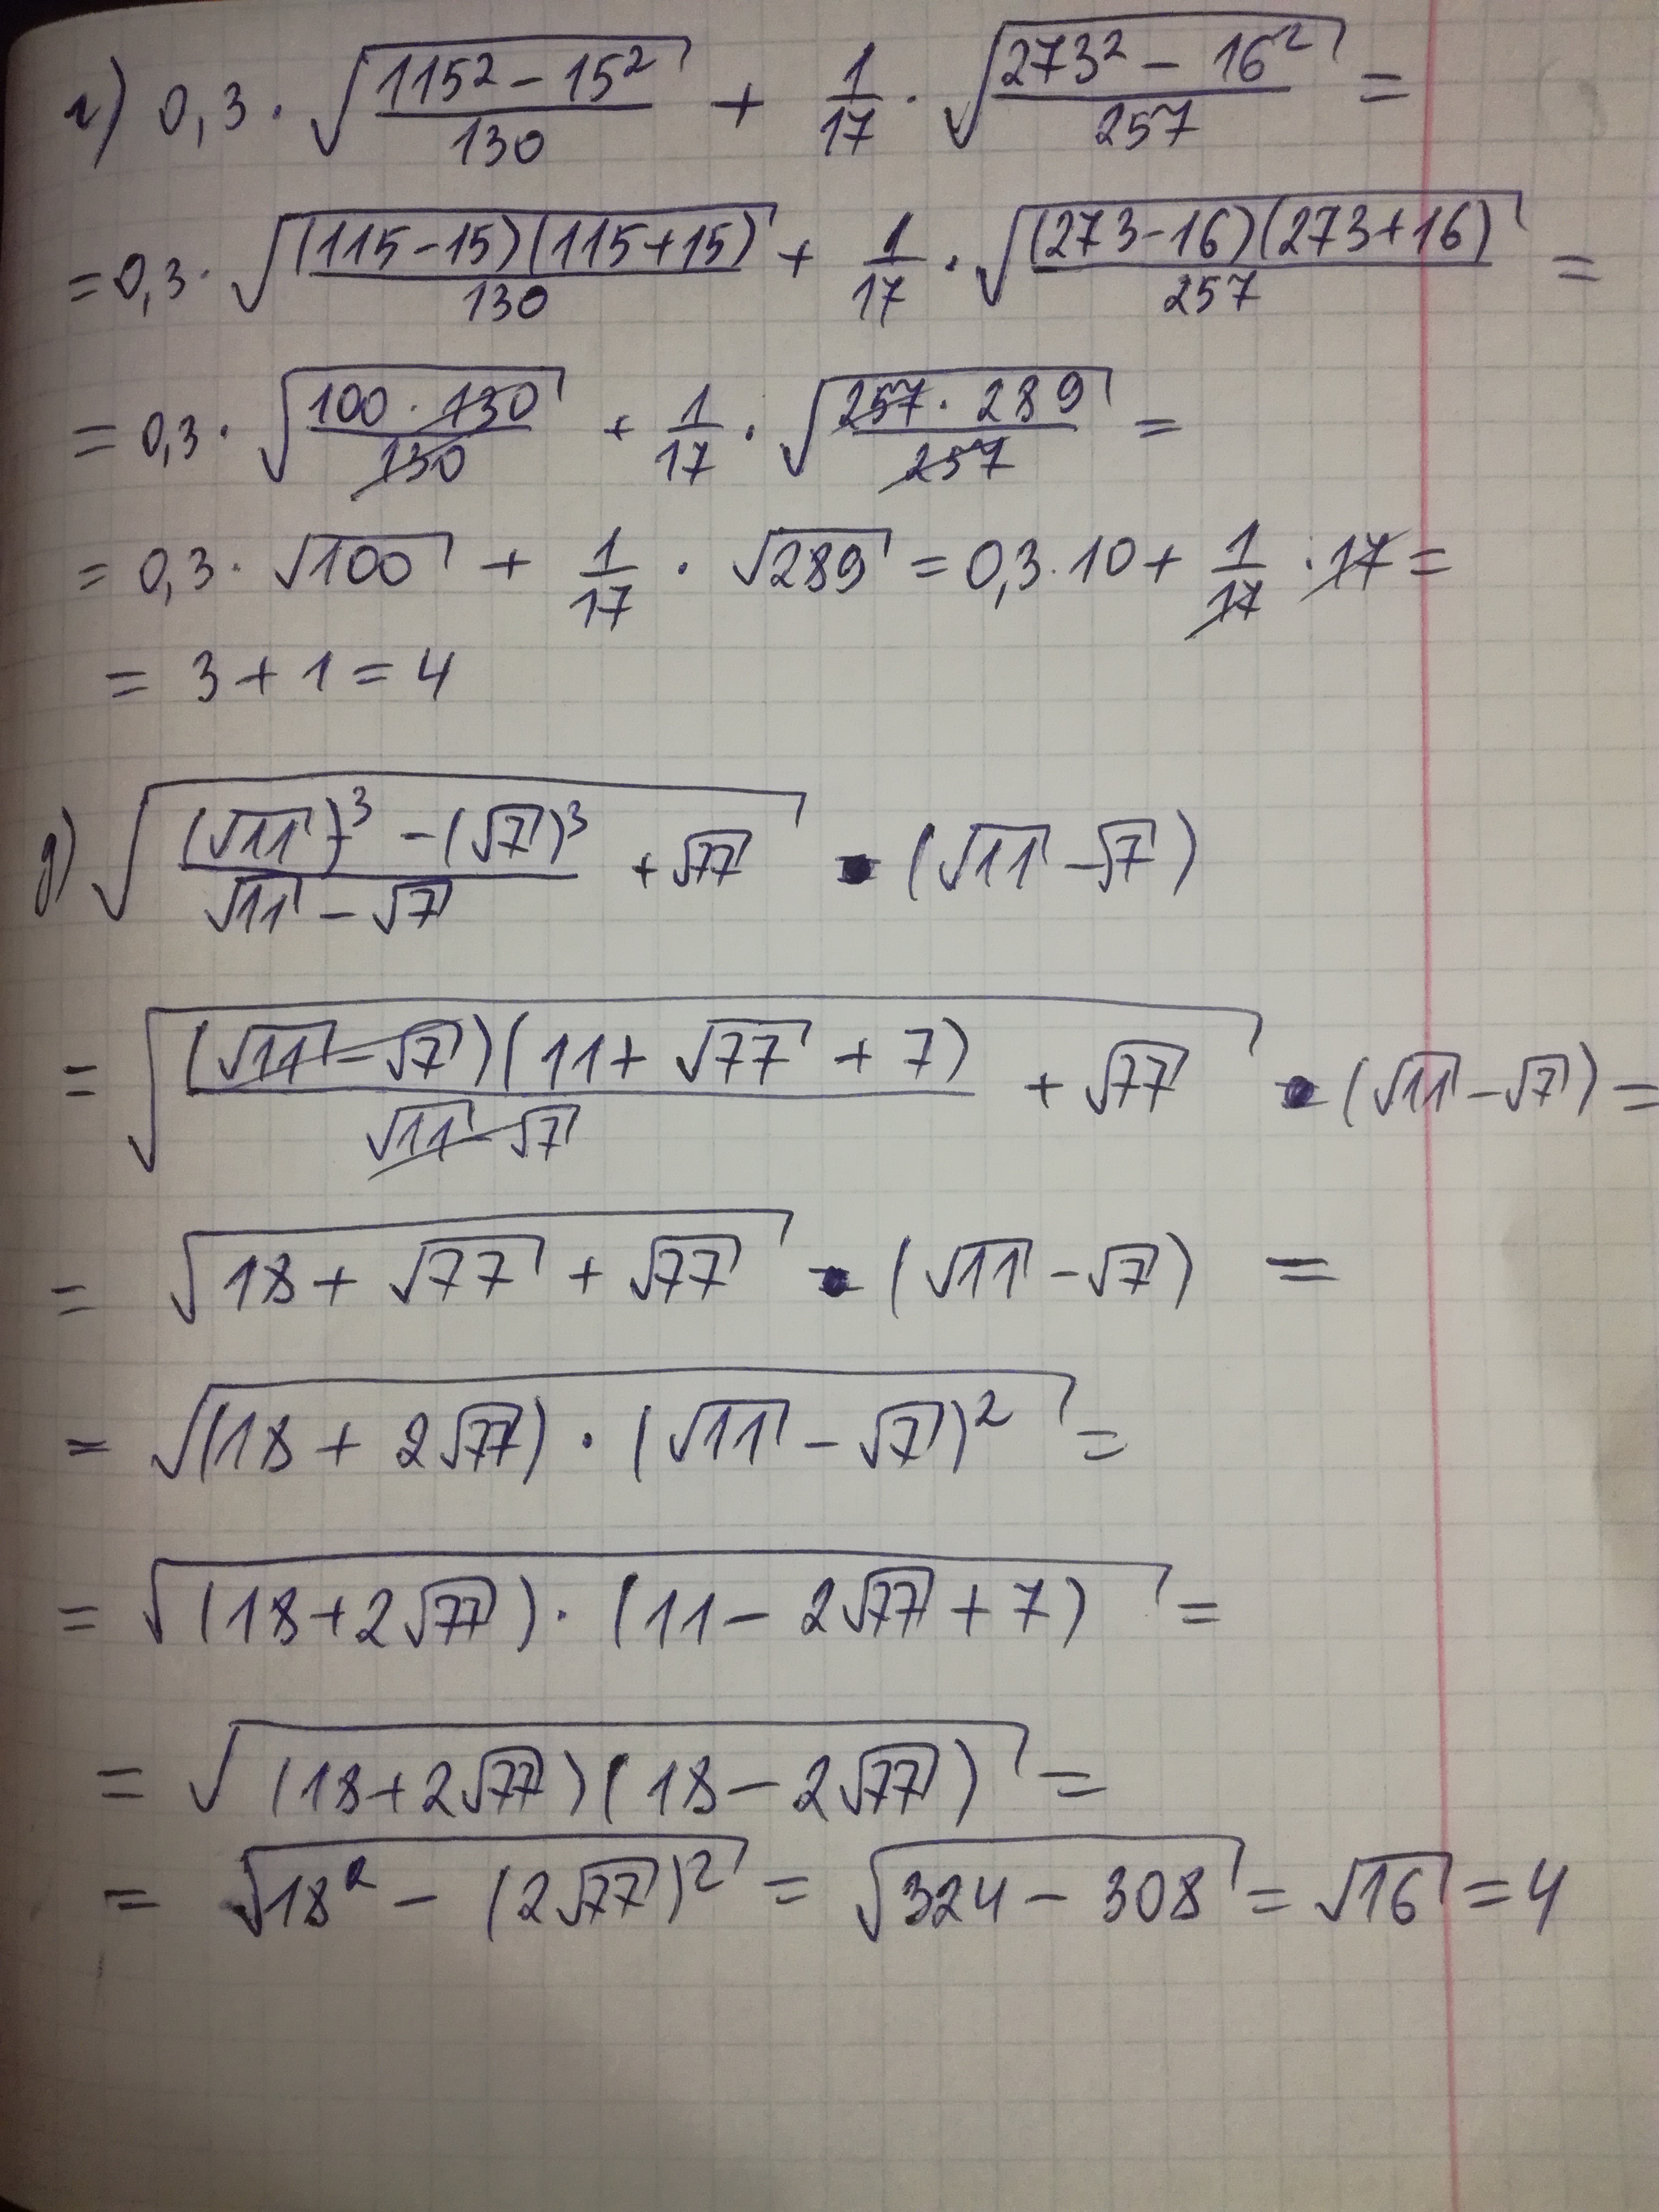 г) 0,3 · √((115² − 15²)/130) + 1/17 · √((273² − 16²)/257) =
= 0,3 · √((115−15)(115+15)/130) + 1/17 · √((273−16)(273+16)/257) =
= 0,3 · √(100 · 130/130) + 1/17 · √(257 · 289/257) =
= 0,3 · √100 + 1/17 · √289 = 0,3 · 10 + 1/17 · 17 =
= 3 + 1 = 4
д) √(((√11)³ − (√7)³)/(√11 − √7) + √77) · (√11 − √7)
= √((√11 − √7)(11 + √77 + 7)/(√11 − √7) + √77) · (√11 − √7) =
= √(18 + √77 + √77) · (√11 − √7) =
= √((18 + 2√77) · (√11 − √7)²) =
= √((18 + 2√77) · (11 − 2√77 + 7)) =
= √((18 + 2√77)(18 − 2√77)) =
= √(18² − (2√77)²) = √(324 − 308) = √16 = 4